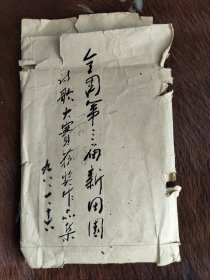 全国第三届新田园
诗歌大赛获奖作品集
九八·一·十六